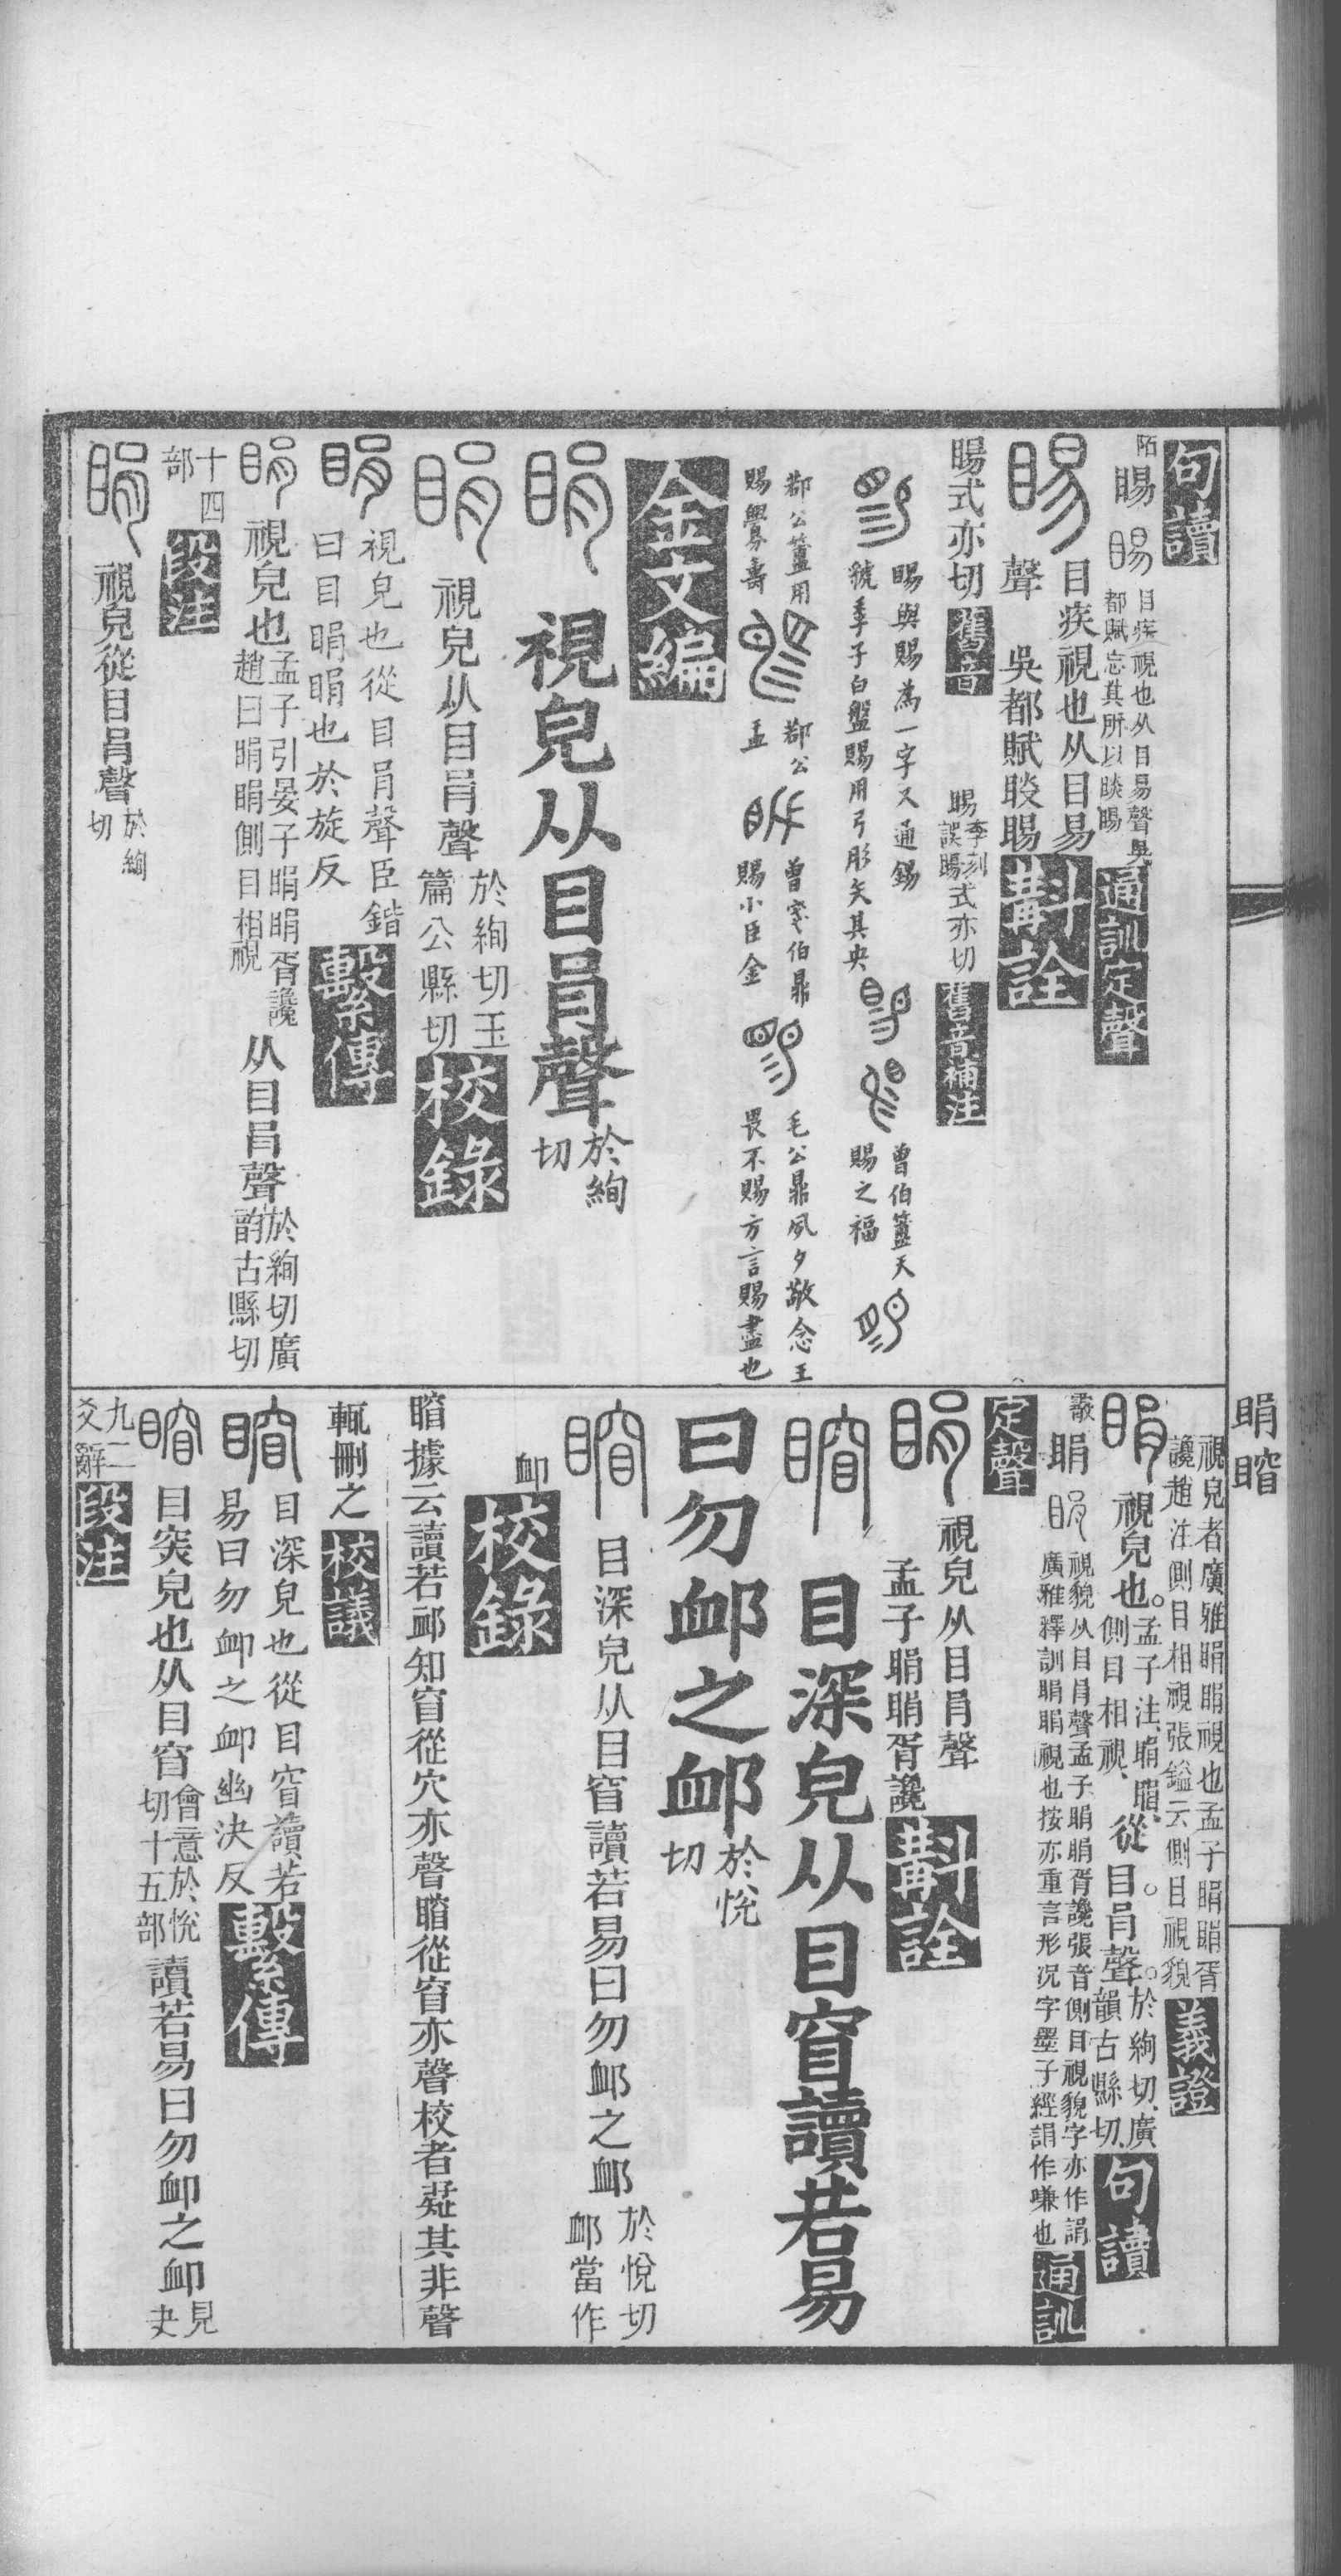 句讀
陌 睗 目疾視也从目易聲吳
都賦忘其所以睒睗 通訓定聲
目疾視也从目易
聲 吳都賦睒睗 斠詮
睗式亦切 舊音
睗 李刻
誤暘 式亦切 舊音補注
睗與賜為一字又通錫
虢季子白盤賜用弓彤矢其央
曾伯簠天
賜之福
鄀公簠用
賜釁壽
鄀公
盂
曾 伯鼎
賜小臣金
毛公鼎夙夕敬念王
畏不賜方言賜盡也
金文編
視皃从目肙聲 於絢
切
視皃从目肙聲 於絢切玉
篇公縣切 校錄
視皃也從目肙聲臣鍇
曰目睊睊也於旋反 繫傳
視皃也 孟子引晏子睊睊胥讒
趙曰睊睊側目相視 从目肙聲 於絢切廣
韵古縣切
十四
部 段注
視皃從目肙聲 於絢
切
睊 䁘
視皃者廣雅睊睊視也孟子睊睊胥
讒趙注側目相視張鎰云側目視貌 義證
視皃也 孟子注睊睊
側目相視 從目肙聲 於絢切廣
韻古縣切 句讀
霰 睊 視貌从目肙聲孟子睊睊胥讒張音側目視貌字亦作䛕
廣雅釋訓睊睊視也按亦重言形況字墨子經䛕作嗛也 通訓
定聲
視皃从目肙聲
孟子睊睊胥讒 斠詮
目深皃从目窅讀若易
曰勿卹之卹 於悅
切
目深皃从目窅讀若易曰勿卹之卹 於悅切
卹當作
卹 校錄
䁘據云讀若卹知窅從穴亦聲䁘從窅亦聲校者疑其非聲
輒刪之 校議
目深皃也從目窅讀若
易曰勿卹之卹幽決反 繫傳
目突皃也从目窅 會意於悅
切十五部 讀若易曰勿卹之卹 見夬
九二
爻辭 段注